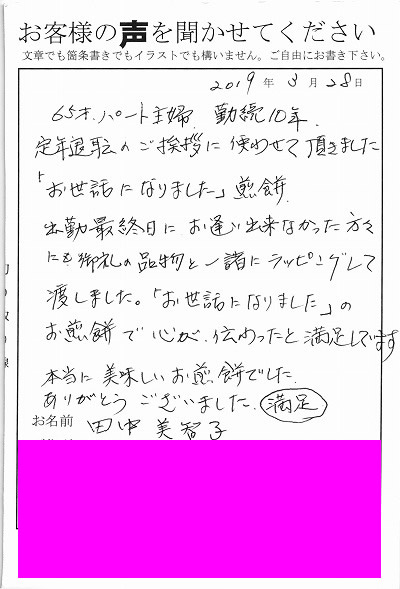 お客様の声を聞かせてください
文章でも箇条書きでもイラストでも構いません。ご自由にお書き下さい。
2019年3月28日
65才.パート主婦. 勤続10年.
定年退職のご挨拶に使わせて頂きました
「お世話になりました」煎餅.
出勤最終日にお逢い出来なかった方々
にも御礼の品物と一諸にラッピングして
渡しました。「お世話になりました」の
お煎餅で心が伝わったと満足しています
本当に美味しいお煎餅でした.
ありがとうございました. 満足
お名前 田中美智子